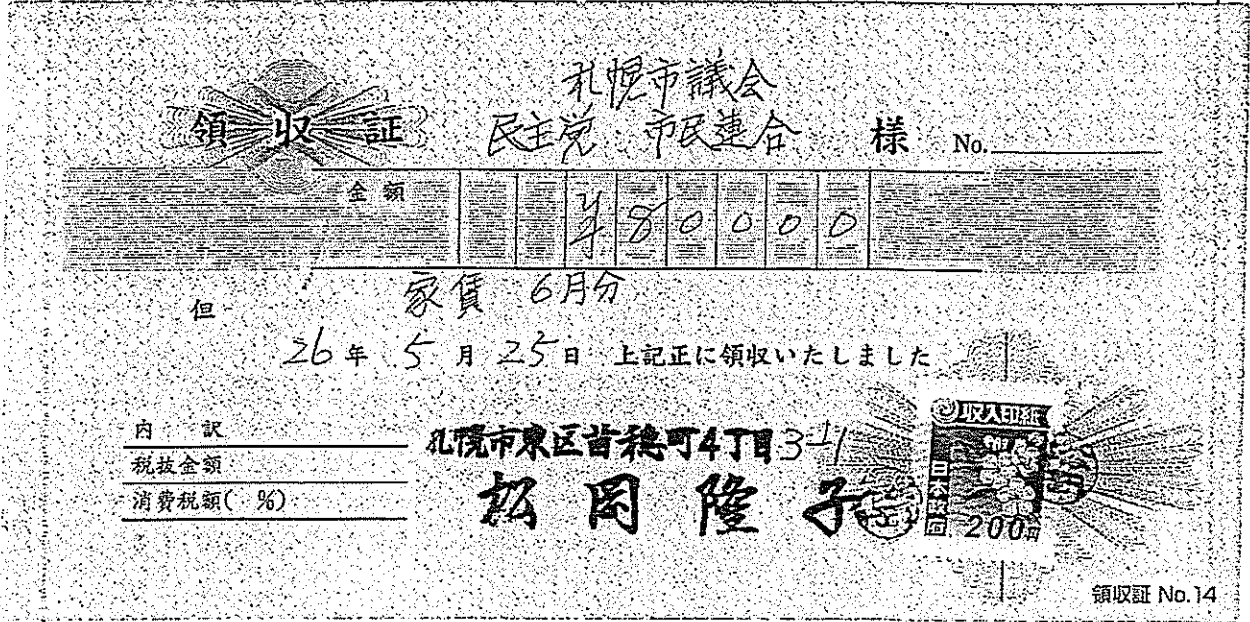 札幌市議会
領収証 民主党 市民連合 様 No.
金額 ¥80000
但 家賃 6月分
26年 5月 25日 上記正に領収いたしました
内訳
税抜金額
消費税額( %)
札幌市東区苗穂町4丁目3-1
松岡隆子
収入印紙
日本政府
200円
領収証 No.14